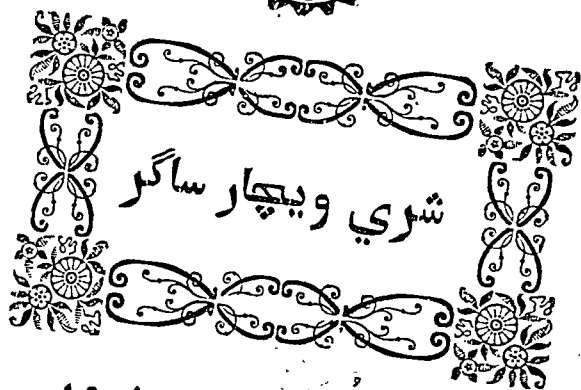 شري ويچار ساگر